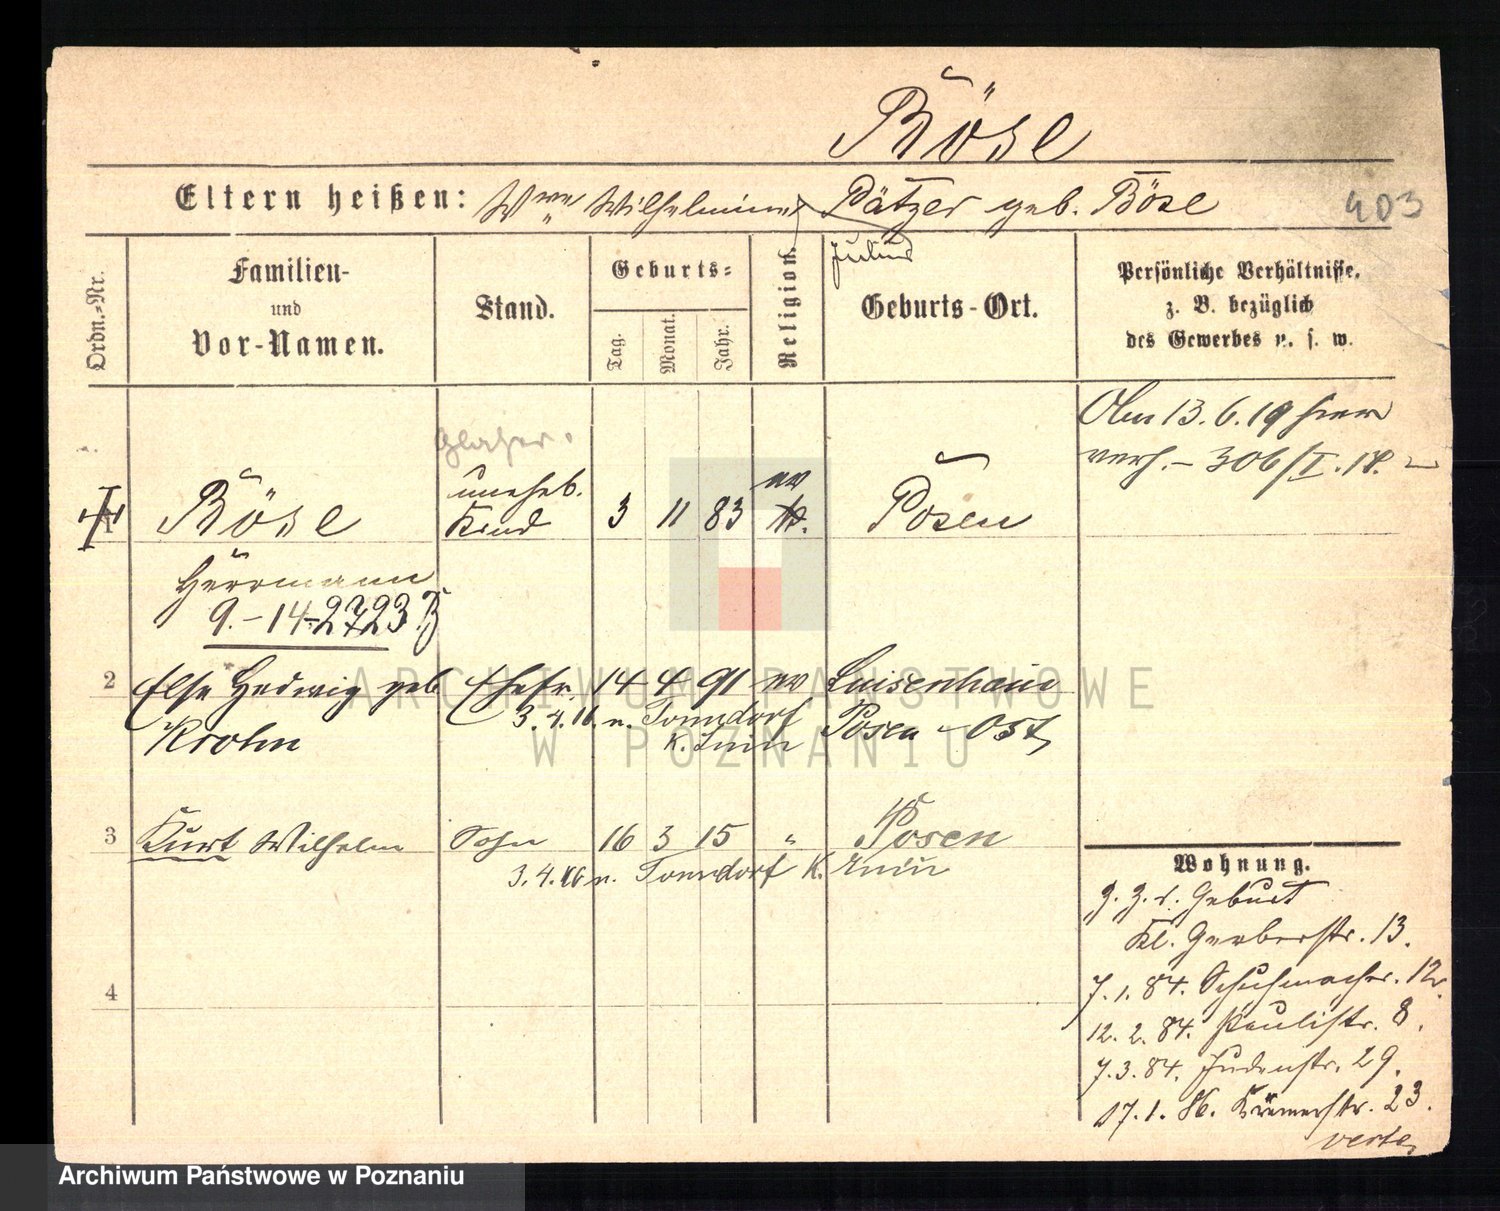 Böse
Eltern heißen: Wwe Wilhelmine Pätzer geb. Böse
403
Julius
Ordn.-Nr.
Familien-
und
Vor-Namen.
Stand.
Geburts-
Tag.
Monat.
Jahr.
Religion.
Geburts-Ort.
Persönliche Verhältnisse.
z. B. bezüglich
des Gewerbes u. s. w.
13.6.19 hier
verh. - 306/I.18.
Glaser.
1 Böse uneheb. Kind 3 11 83 ev Posen
Herrmann
9.-14-2723
2 Else Hedwig geb Ehefr. 14 4 91 ev Luisenhain
Krohn 3.4.16. n. Tonndorf Posen-Ost
K.
3 Kurt Wilhelm Sohn 16 3 15 " Posen
3.4.16 n. Tonndorf K.
4
Wohnung.
z. Z. d. Geburt
Kl. Gerberstr. 13.
7.1.84. Schuhmacher. 12.
12.2.84. Paulistr. 8.
7.3.84. Judenstr. 29.
17.1.86. Krämerstr. 23.
verte
ARCHIWUM PAŃSTWOWE
W POZNANIU
Archiwum Państwowe w Poznaniu